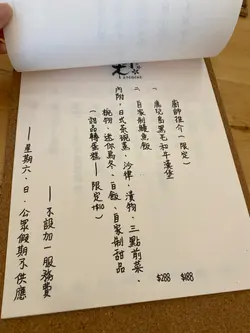 廚師推介(限定)
一、鹿兒島黑毛和牛漢堡 $188
二、自家制鰻魚飯 $288
內附：日式茶碗蒸、沙律、漬物、三點前菜、
桃物、迷你烏冬、白飯、自家制甜品
(甜品轉蛋糕—限定+$10)
—不設加一服務費
—星期六、日、公眾假期不供應